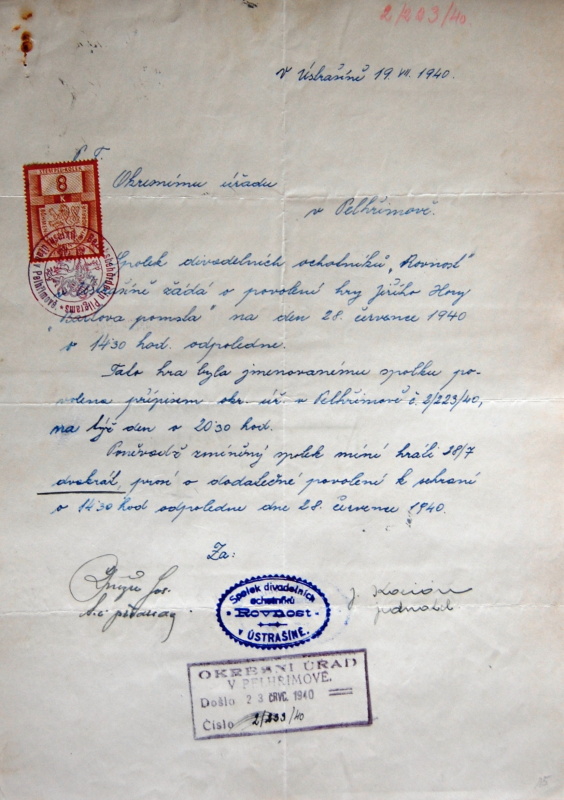 2/203/40
V Ústrašíně 19. VII. 1940.
P. T.
Okresnímu úřadu
v Pelhřimově.
8
K
Spolek divadelních ochotníků „Rovnost"
v Ústrašíně žádá o povolení hry Jiřího Hory
"Bartova pomsta" na den 28. července 1940
v 14'30 hod. odpoledne.
Tato hra byla jmenovanému spolku po-
volena přípisem okr. úř. v Pelhřimově č. 2/223/40,
na týž den v 20'30 hod.
Poněvadž zmíněný spolek míní hráti 28/7
dvakrát, prosí o dodatečné povolení k sehraní
v 14'30 hod odpoledne dne 28. července 1940.
Za:
t. č. předseda
J. Kocián
jednatel
Spolek divadelních
ochotníků
Rovnost
V ÚSTRAŠÍNĚ.
OKRESNÍ ÚŘAD
V PELHŘIMOVĚ.
Došlo 23 ČRVC. 1940
Číslo 2/233/40